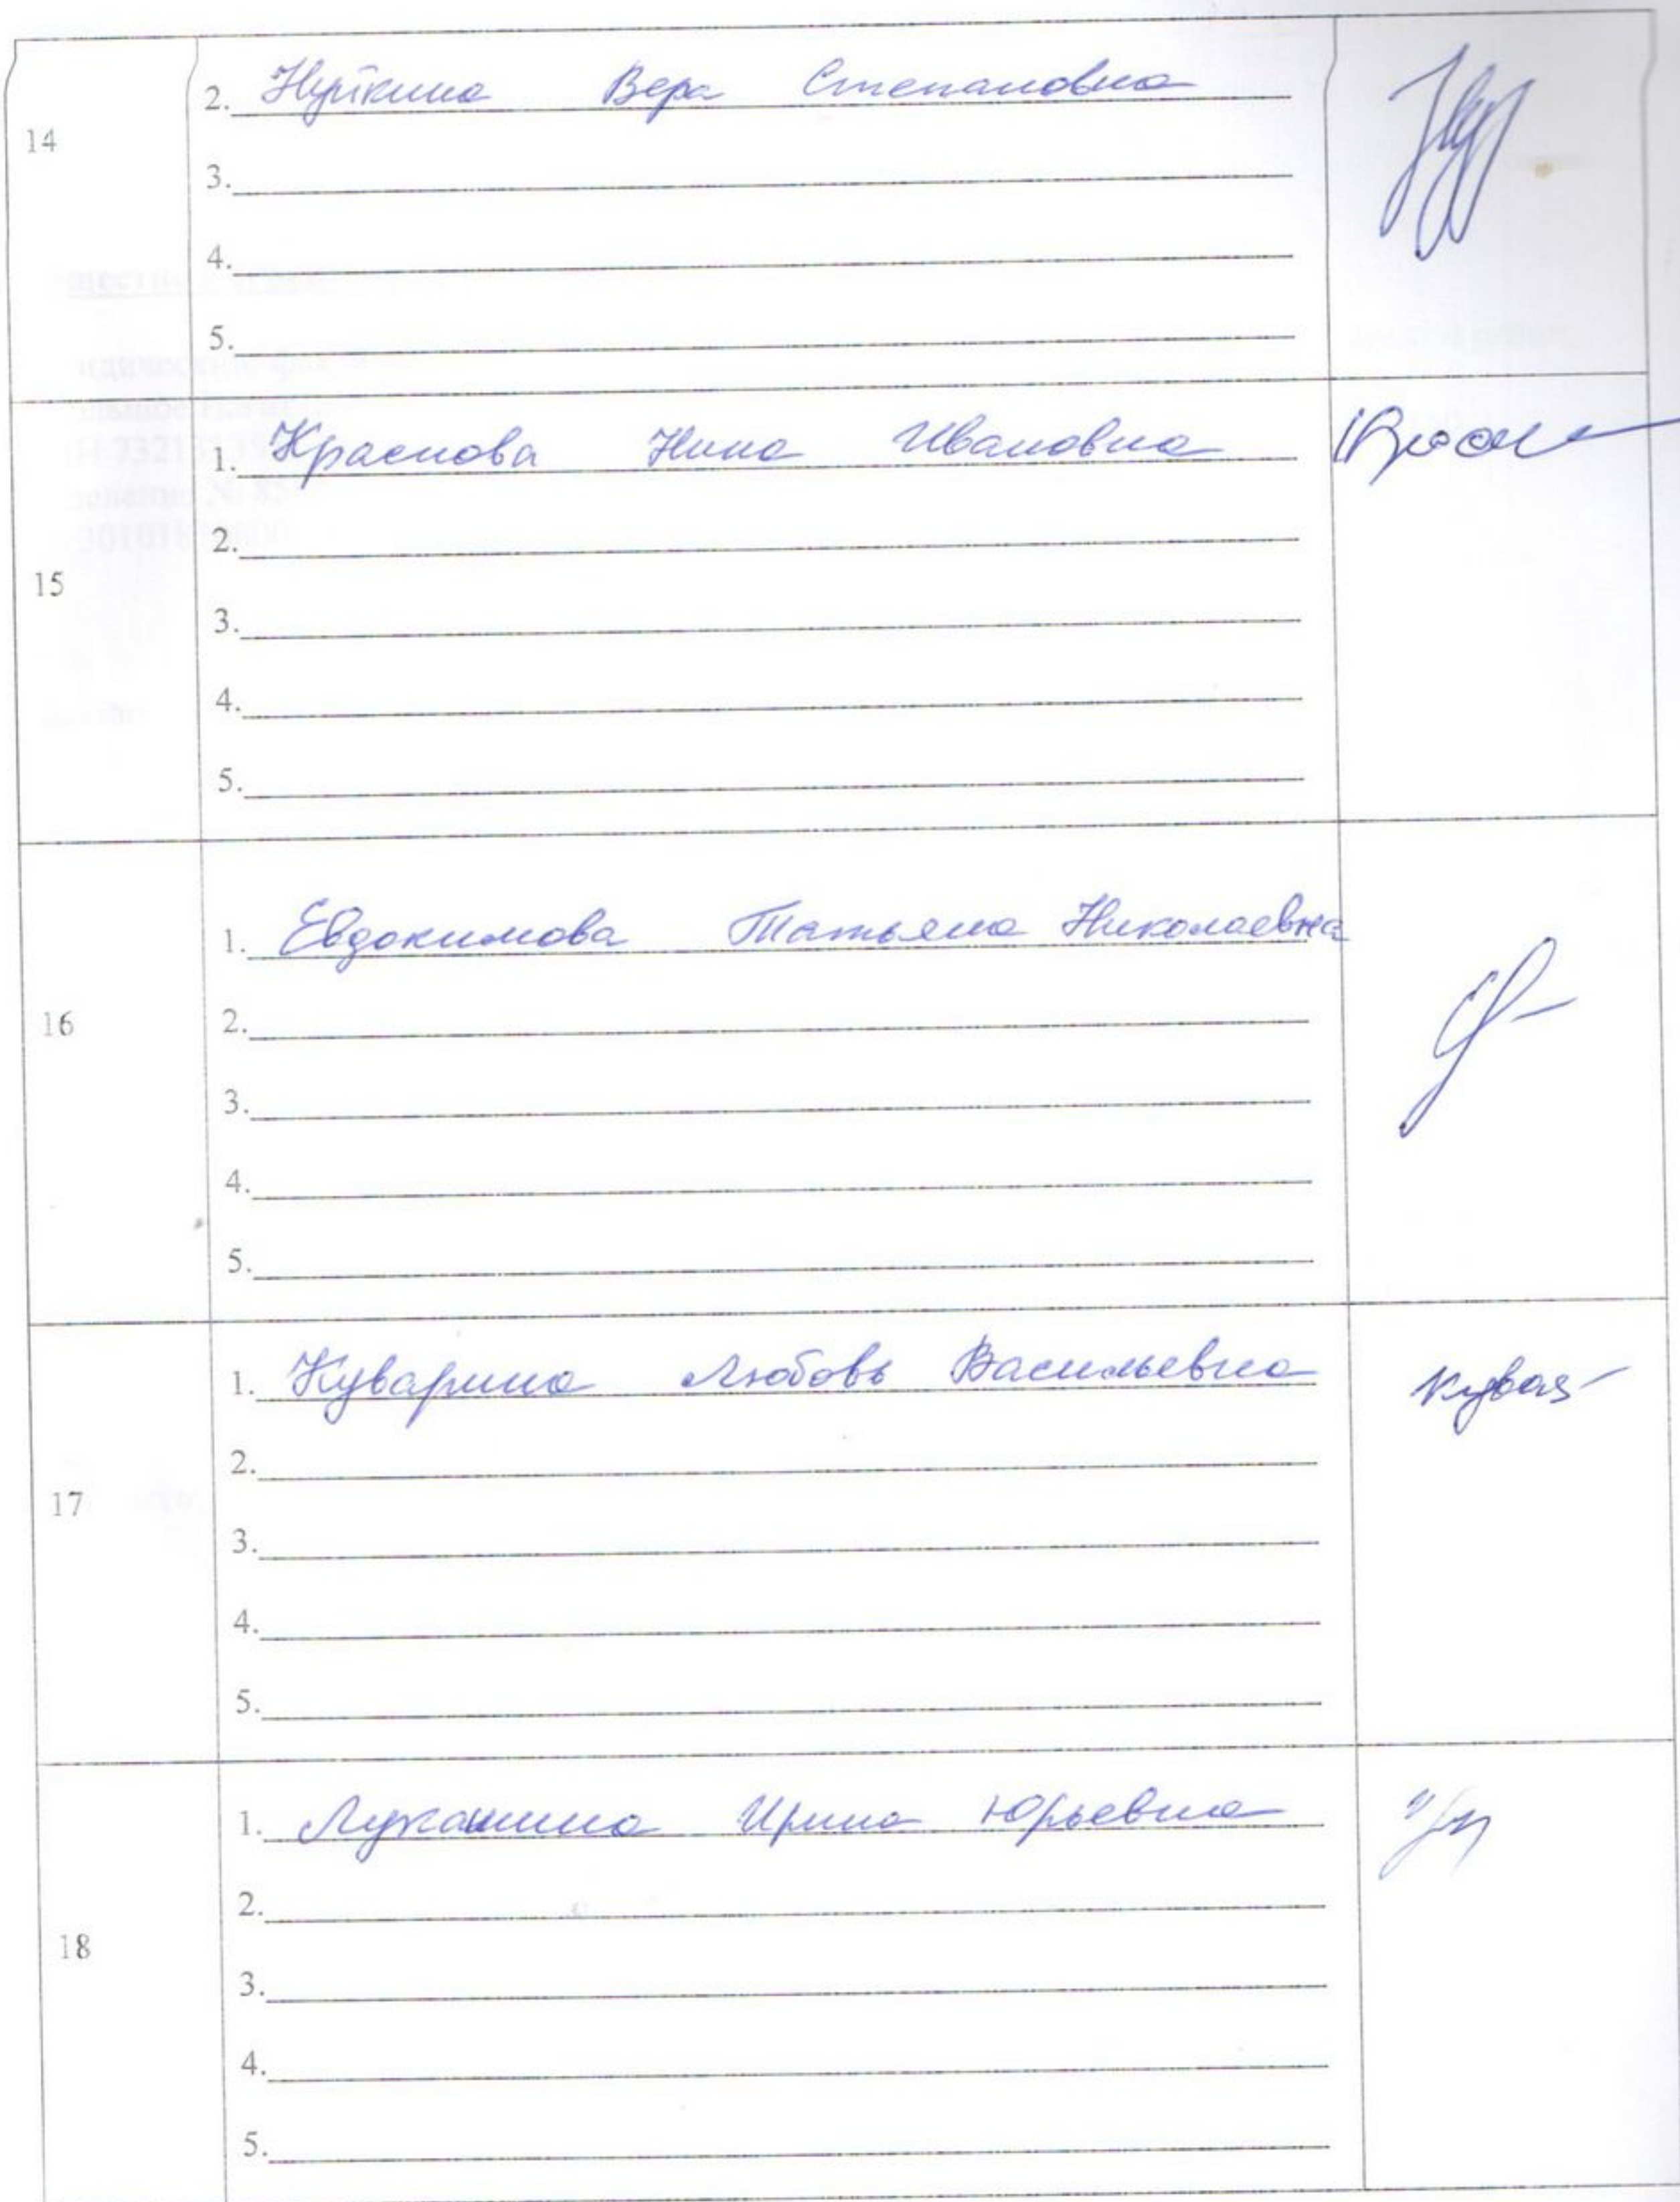 14
2. Нуйкина Вера Степановна
3.
4.
5.
1. Краснова Нина Ивановна
2.
15
3.
4.
5.
1. Евдокимова Татьяна Николаевна
16
2.
3.
4.
5.
1. Куварина Любовь Васильевна
2.
17
3.
4.
5.
1. Лукашина Ирина Юрьевна
2.
18
3.
4.
5.